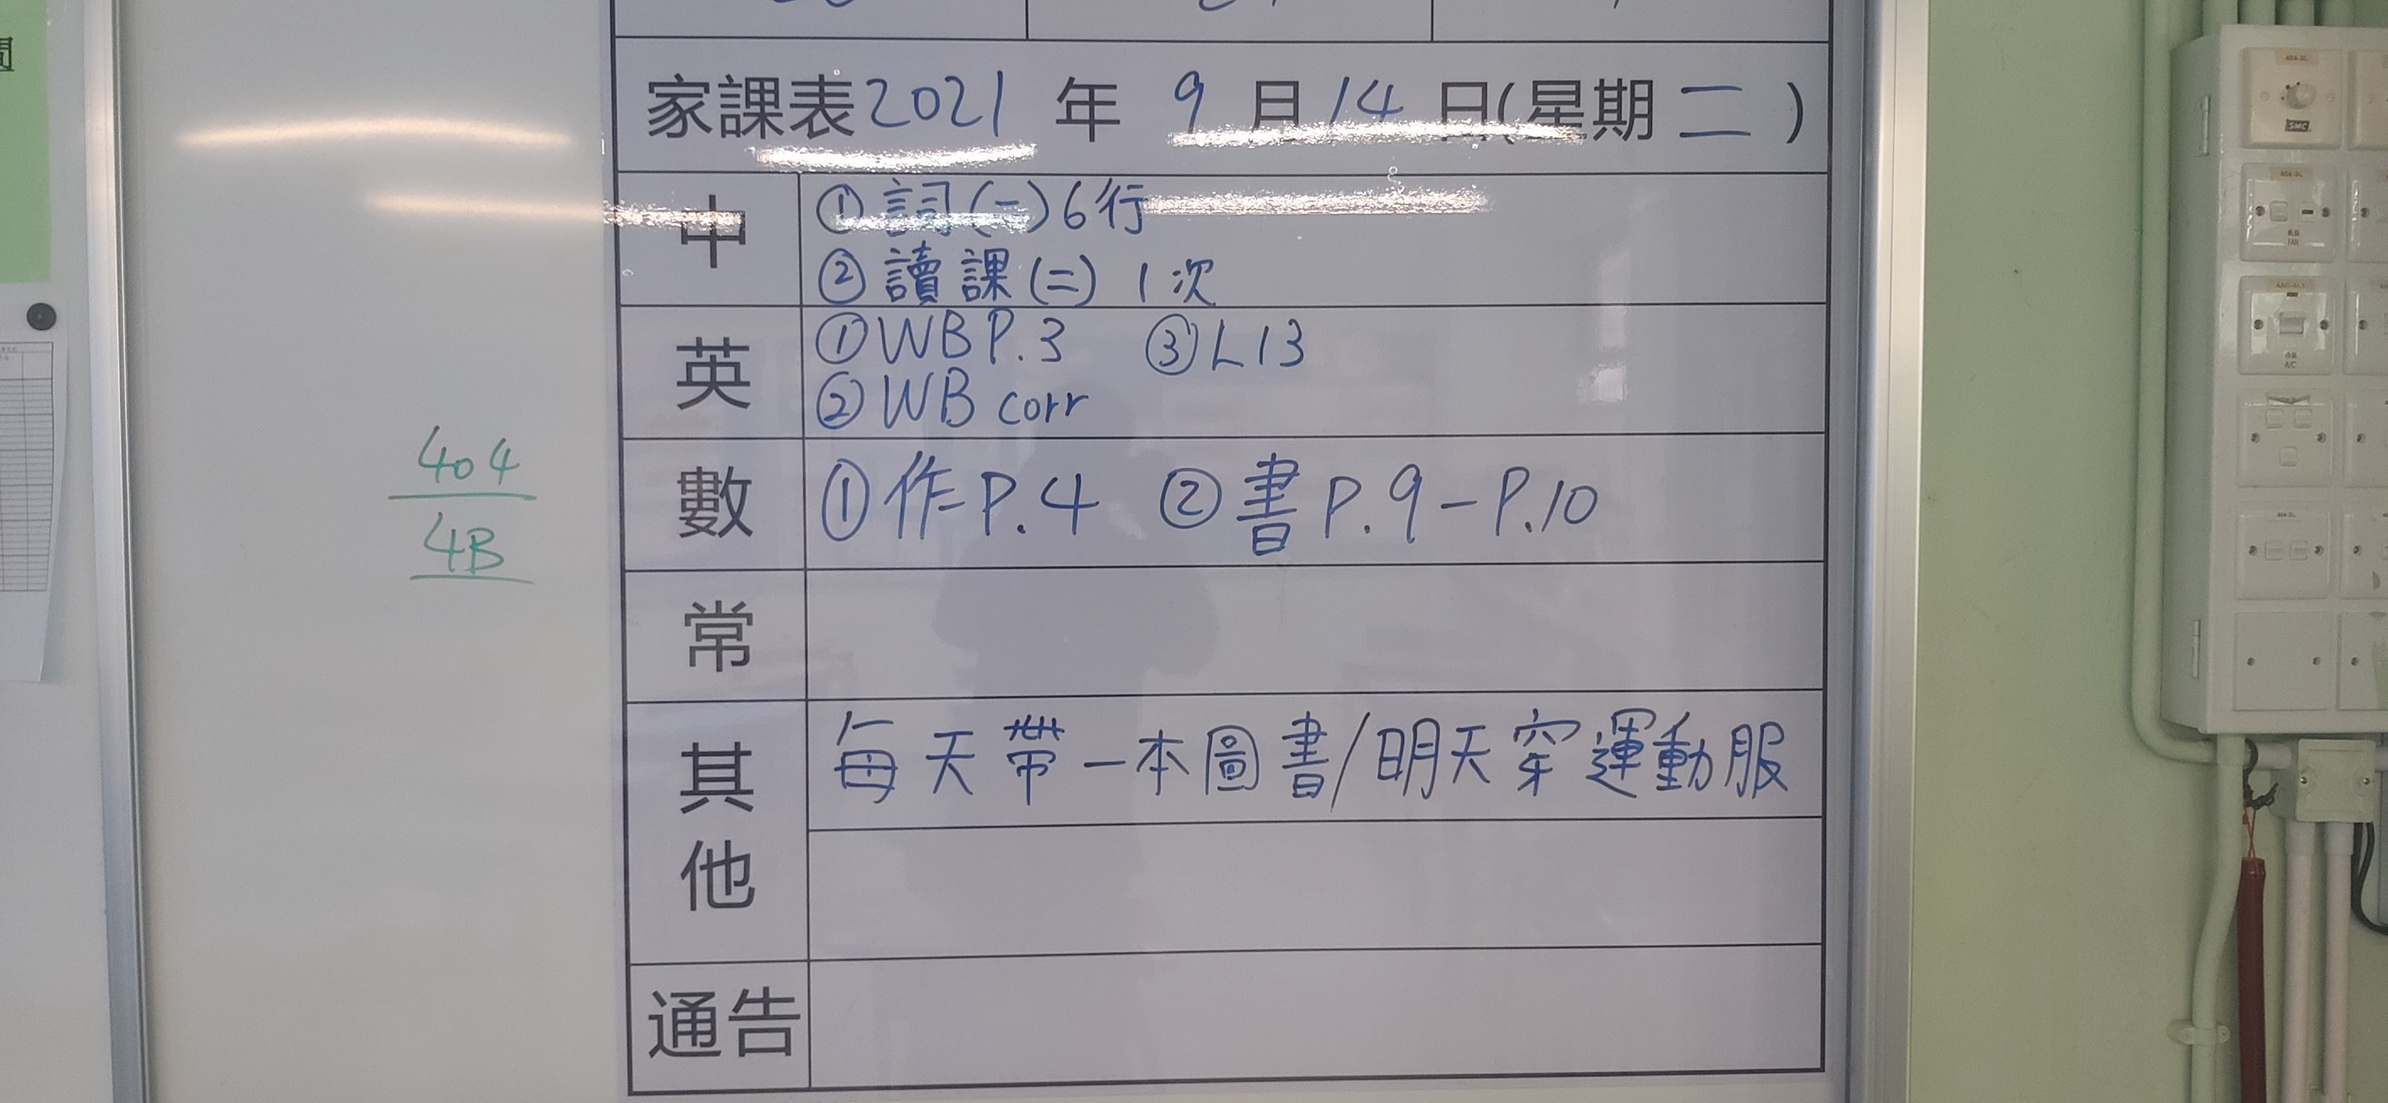 家課表2021 年 9 月 14 日(星期 二 )
中
①詞(一)6行
②讀課(二) 1次
英
①WB P.3 ③L13
②WB corr
數
①作P.4 ②書P.9-P.10
常
其他
每天帶一本圖書/明天穿運動服
通告
404
4B